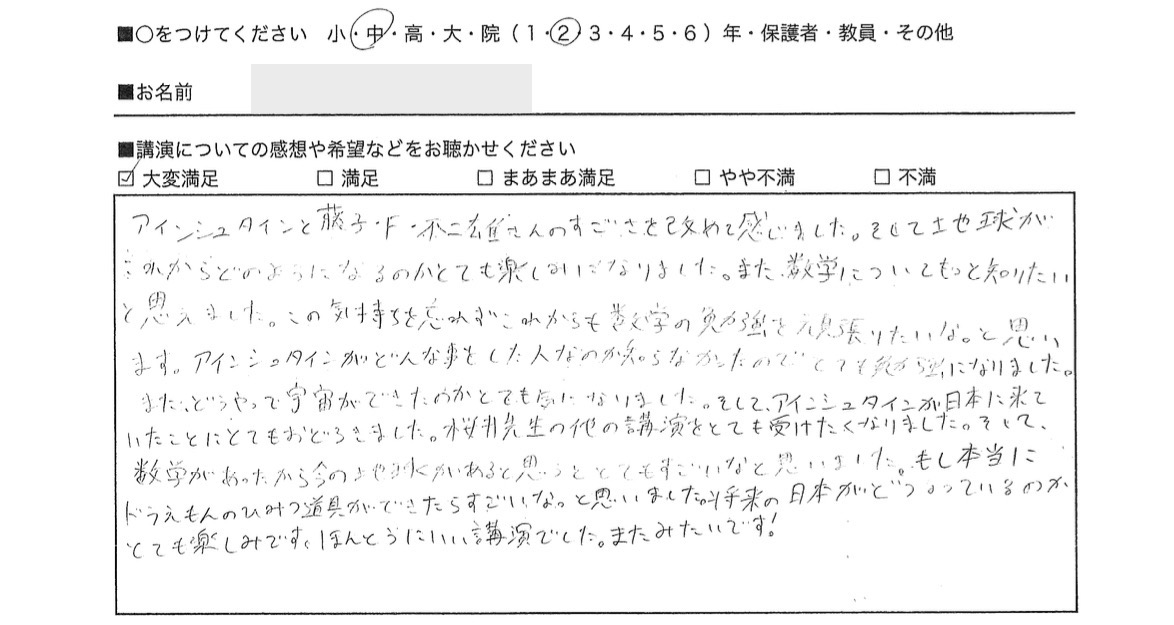 ■○をつけてください 小・中・高・大・院(1・2・3・4・5・6)年・保護者・教員・その他
■お名前
■講演についての感想や希望などをお聴かせください
☑ 大変満足 □ 満足 □ まあまあ満足 □ やや不満 □ 不満
アインシュタインと藤子・F・不二雄さんのすごさを改めて感じました。そして地球が
これからどのようになるのかとても楽しみになりました。また、数学についてもっと知りたい
と思えました。この気持ちを忘れずこれからも数学の勉強を頑張りたいな。と思い
ます。アインシュタインがどんな事をした人なのか知らなかったのでとても勉強になりました。
また、どうやって宇宙ができたのかとても気になりました。そして、アインシュタインが日本に来て
いたことにとてもおどろきました。桜井先生の他の講演をとても受けたくなりました。そして、
数学があったから今の地球があると思うととてもすごいなと思いました。もし本当に
ドラえもんのひみつ道具ができたらすごいな。と思いました。将来の日本がどうなっているのか
とても楽しみです。ほんとうにいい講演でした。またみたいです!